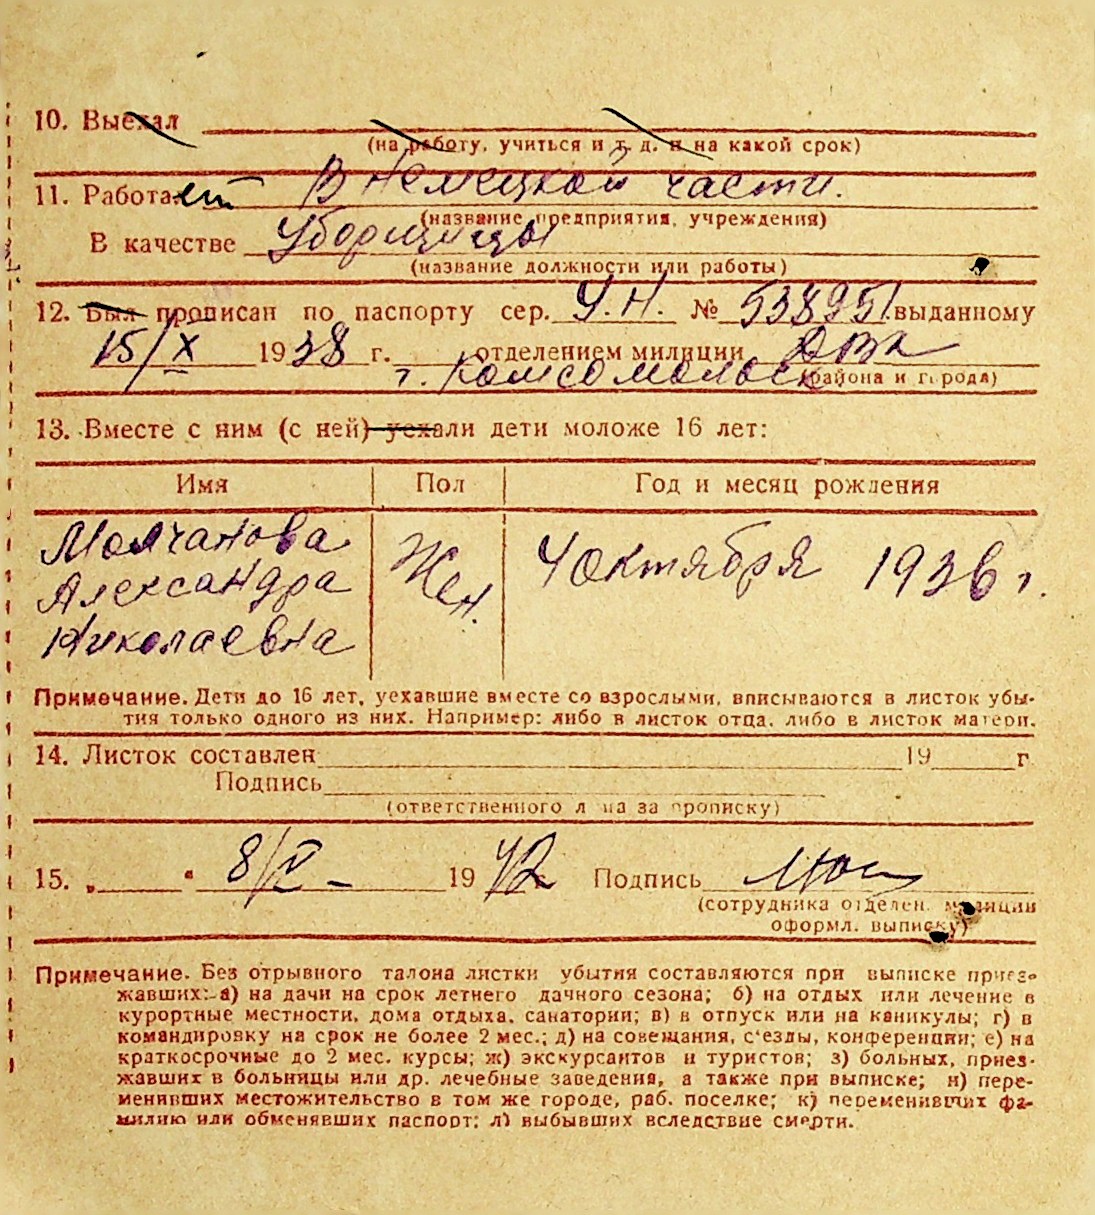 10. Выехал
(на работу, учиться и т. д. и на какой срок)
11. Работает В Немецкой части.
(название предприятия, учреждения)
В качестве Уборщицы
(название должности или работы)
12. Был прописан по паспорту сер. У.Н. № 538951 выданному
15/X 1938 г. отделением милиции ДВК
г. Комсомольск (района и города)
13. Вместе с ним (с ней) уехали дети моложе 16 лет:
Имя Пол Год и месяц рождения
Молчанова Жен. 4 Октября 1936 г.
Александра
Николаевна
Примечание. Дети до 16 лет, уехавшие вместе со взрослыми, вписываются в листок убы-
тия только одного из них. Например: либо в листок отца, либо в листок матери.
14. Листок составлен 19 г
Подпись
(ответственного лица за прописку)
15. „ “ 8/V - 1942 Подпись
(сотрудника отделен. милиции
оформл. выписку)
Примечание. Без отрывного талона листки убытия составляются при выписке приез-
жавших: а) на дачи на срок летнего дачного сезона; б) на отдых или лечение в
курортные местности, дома отдыха, санатории; в) в отпуск или на каникулы; г) в
командировку на срок не более 2 мес.; д) на совещания, с'езды, конференции; е) на
краткосрочные до 2 мес. курсы; ж) экскурсантов и туристов; з) больных, приез-
жавших в больницы или др. лечебные заведения, а также при выписке; и) пере-
менивших местожительство в том же городе, раб. поселке; к) переменивших фа-
милию или обменявших паспорт; л) выбывших вследствие смерти.